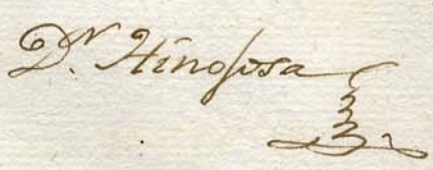 Dr. Hinojosa